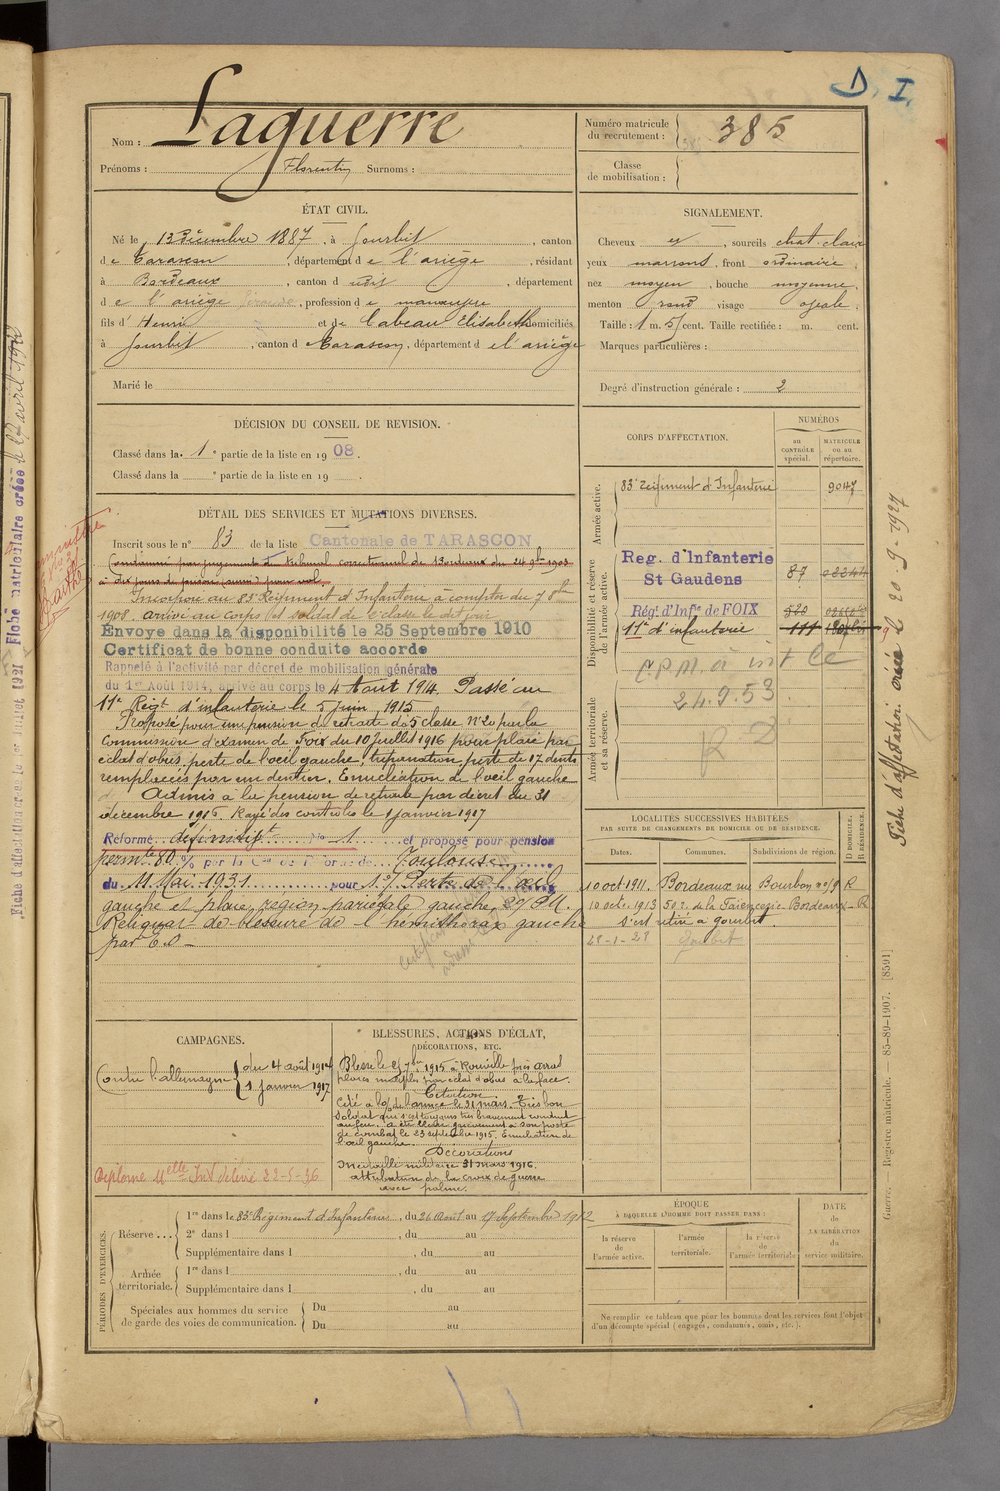 D. I.
Nom : Laguerre
Prénoms : Florentin Surnoms :
Numéro matricule du recrutement : 385
Classe de mobilisation :
ÉTAT CIVIL.
Né le 13 Décembre 1887, à Gourbit, canton
de Tarascon, département de l'ariège, résidant
à Bordeaux, canton d udit, département
de l'ariège, profession de manœuvre
fils d' Henri et de Cabeau Elisabeth domiciliés
à Gourbit, canton de Tarascon, département de l'ariège
Marié le
SIGNALEMENT.
Cheveux et, sourcils chat. clair
yeux marrons, front ordinaire,
nez moyen, bouche moyenne,
menton rond visage ovale.
Taille : 1 m. 51 cent. Taille rectifiée : m. cent.
Marques particulières :
Degré d'instruction générale : 2
DÉCISION DU CONSEIL DE REVISION.
Classé dans la 1e partie de la liste en 1908.
Classé dans la e partie de la liste en 19 .
DÉTAIL DES SERVICES ET MUTATIONS DIVERSES.
Inscrit sous le n° 83 de la liste Cantonale de TARASCON
Condamné par jugement du tribunal correctionnel de Bordeaux du 24 9bre 1903
à dix jours de prison (sursis) pour vol.
Incorporé au 83e Régiment d'Infanterie à compter du 7 8bre
1908. arrivé au corps et soldat de 2e classe le dit jour
Envoye dans la disponibilité le 25 Septembre 1910
Certificat de bonne conduite accorde
Rappelé à l'activité par décret de mobilisation générale
du 1er Août 1914, arrivé au corps le 4 Aout 1914. Passé au
11e Régt d'infanterie le 5 juin 1915
Proposé pour une pension de retraite de 5 classe N° 20 par la
Commission d'examen de Foix du 10 Juillet 1916 pour plaie par
éclat d'obus, perte de l'œil gauche, trépanation, perte de 17 dents
remplacées par un dentier. Enucléation de l'œil gauche
Admis à la pension de retraite par décret du 31
décembre 1916. Rayé des contrôles le 1 janvier 1917
Réformé définitift No 1 et proposé pour pension
permte 80 % par la Con de Réforme de Toulouse
du 11 Mai 1931 pour 1°/ Perte de l'œil
gauche et plaie région pariétale gauche. 2°/ P.A.
Reliquat de blessure de l'hémithorax gauche
par E.O
CORPS D'AFFECTATION.
NUMÉROS
au CONTRÔLE spécial.
MATRICULE ou au répertoire.
Armée active.
83e Régiment d'Infanterie 9047
Disponibilité et réserve de l'armée active.
Reg. d'Infanterie
St Gaudens 87
Régt d'Infie de FOIX 520
11e d'infanterie 111
Armée territoriale et sa réserve.
24.9.53
LOCALITÉS SUCCESSIVES HABITÉES
PAR SUITE DE CHANGEMENTS DE DOMICILE OU DE RÉSIDENCE.
Dates. Communes. Subdivisions de région. D. DOMICILE. R. RÉSIDENCE.
10 oct 1911. Bordeaux rue Bourbon n° 9 R
10 octe 1913 50 r. de la Faiencerie Bordeaux R
s'est retiré à gourbit.
Gourbit
CAMPAGNES.
Contre l'allemagne du 4 août 1914
1 janvier 1917
Diplome Melle
22-5-36
BLESSURES, ACTIONS D'ÉCLAT,
DÉCORATIONS, ETC.
Blessé le 25 7bre 1915 à Roville près Arras
plaies multiples par éclat d'obus à la face.
Citation
Cité à l'o/ de l'armée le 31 mars. Très bon
soldat qui s'est toujours très bravement conduit
au feu. a été blessé grièvement à son poste
de combat le 23 septembre 1915. Enucléation de
l'œil gauche.
Décorations
Médaille militaire 31 mars 1916.
attribution de la croix de guerre
avec palme.
PÉRIODES D'EXERCICES.
Réserve...
1re dans le 83e Régiment d'Infanterie, du 26 Août au 17 Septembre 1912
2e dans l , du au
Supplémentaire dans l , du au
Armée territoriale.
1re dans l , du au
Supplémentaire dans l , du au
Spéciales aux hommes du service de garde des voies de communication.
Du au
Du au
ÉPOQUE
À LAQUELLE L'HOMME DOIT PASSER DANS :
la réserve de l'armée active.
l'armée territoriale.
la réserve de l'armée territoriale
DATE de LA LIBÉRATION du service militaire.
Ne remplir ce tableau que pour les hommes dont les services font l'objet
d'un décompte spécial (engagés, condamnés, omis, etc.).
Fiche d'affectation créée le 20-9-1927
Guerre. — Registre matricule. — 85-89-1907. [8591]
Fiche matriculaire créée le
Fiche d'affectation créée le 1er Juillet 1921